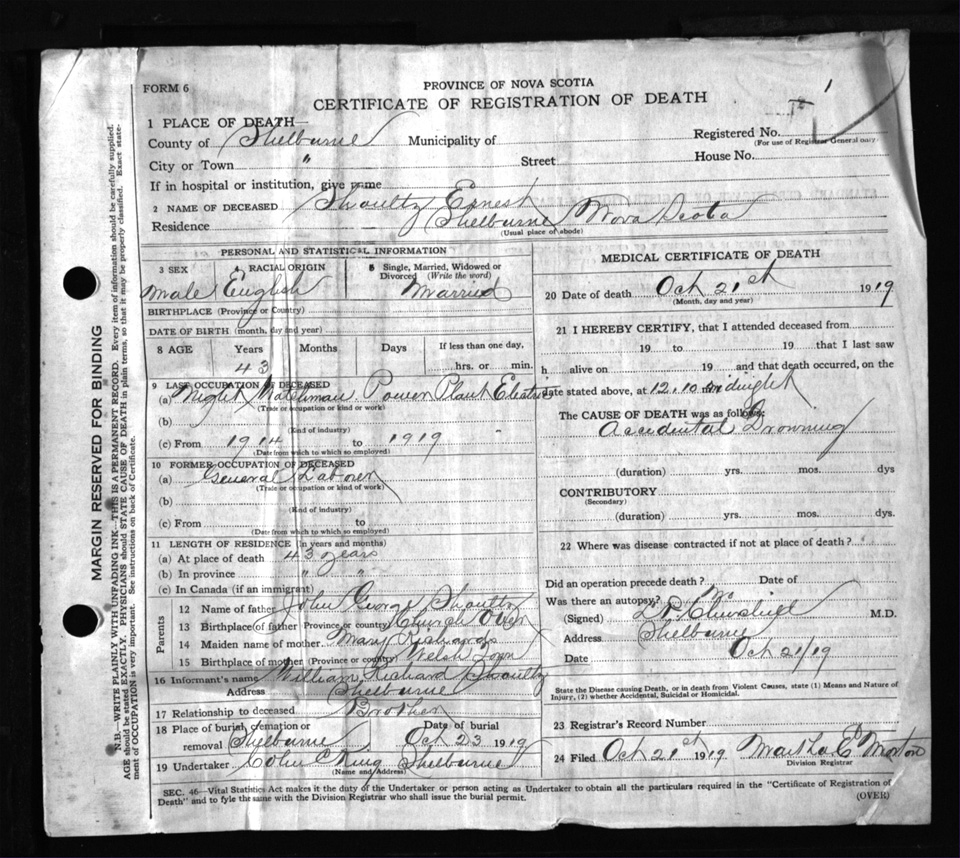 FORM 6
PROVINCE OF NOVA SCOTIA
CERTIFICATE OF REGISTRATION OF DEATH
1 PLACE OF DEATH—
County of Shelburne Municipality of
Registered No.
(For use of Registrar General only)
City or Town " Street House No.
If in hospital or institution, give name
2 NAME OF DECEASED Shoultz Ernest
Residence Shelburne Nova Scotia
(Usual place of abode)
PERSONAL AND STATISTICAL INFORMATION
3 SEX 4 RACIAL ORIGIN 5 Single, Married, Widowed or Divorced (Write the word)
Male English Married
BIRTHPLACE (Province or Country)
DATE OF BIRTH (month, day and year)
8 AGE Years Months Days If less than one day,
43 hrs. or min.
9 LAST OCCUPATION OF DECEASED
(a) Night Watchman Power Plant Electric
(Trade or occupation or kind of work)
(b)
(Kind of industry)
(c) From 1914 to 1919
(Date from which to which so employed)
10 FORMER OCCUPATION OF DECEASED
(a) General Laborer
(Trade or occupation or kind of work)
(b)
(Kind of industry)
(c) From to
(Date from which to which so employed)
11 LENGTH OF RESIDENCE (in years and months)
(a) At place of death 43 years
(b) In province " "
(c) In Canada (if an immigrant)
Parents
12 Name of father John George Shoultz
13 Birthplace of father (Province or country) Church Over
14 Maiden name of mother Mary Richards
15 Birthplace of mother (Province or country) Welsh Town
16 Informant's name William Richard Shoultz
Address Shelburne
17 Relationship to deceased Brother
18 Place of burial, cremation or removal Shelburne Date of burial Oct 23 1919
19 Undertaker Colin C King Shelburne
(Name and Address)
MEDICAL CERTIFICATE OF DEATH
20 Date of death Oct 21st 1919
(Month, day and year)
21 I HEREBY CERTIFY, that I attended deceased from
19 to 19 that I last saw
h alive on 19 and that death occurred, on the
date stated above, at 12.10 Midnight
The CAUSE OF DEATH was as follows:
Accidental Drowning
(duration) yrs. mos. dys
CONTRIBUTORY
(Secondary)
(duration) yrs. mos. dys.
22 Where was disease contracted if not at place of death?
Did an operation precede death? Date of
Was there an autopsy? no
(Signed) Churchill M.D.
Address Shelburne
Date Oct 21/19
State the Disease causing Death, or in death from Violent Causes, state (1) Means and Nature of
Injury, (2) whether Accidental, Suicidal or Homicidal.
23 Registrar's Record Number
24 Filed Oct 21st 1919 Martha E Morton
Division Registrar
SEC. 46—Vital Statistics Act makes it the duty of the Undertaker or person acting as Undertaker to obtain all the particulars required in the "Certificate of Registration of
Death" and to fyle the same with the Division Registrar who shall issue the burial permit.
(OVER)
MARGIN RESERVED FOR BINDING
N.B.—WRITE PLAINLY WITH UNFADING INK—THIS IS A PERMANENT RECORD. Every item of information should be carefully supplied.
AGE should be stated EXACTLY. PHYSICIANS should STATE CAUSE OF DEATH in plain terms, so that it may be properly classified. Exact state-
ment of OCCUPATION is very important. See instructions on back of Certificate.